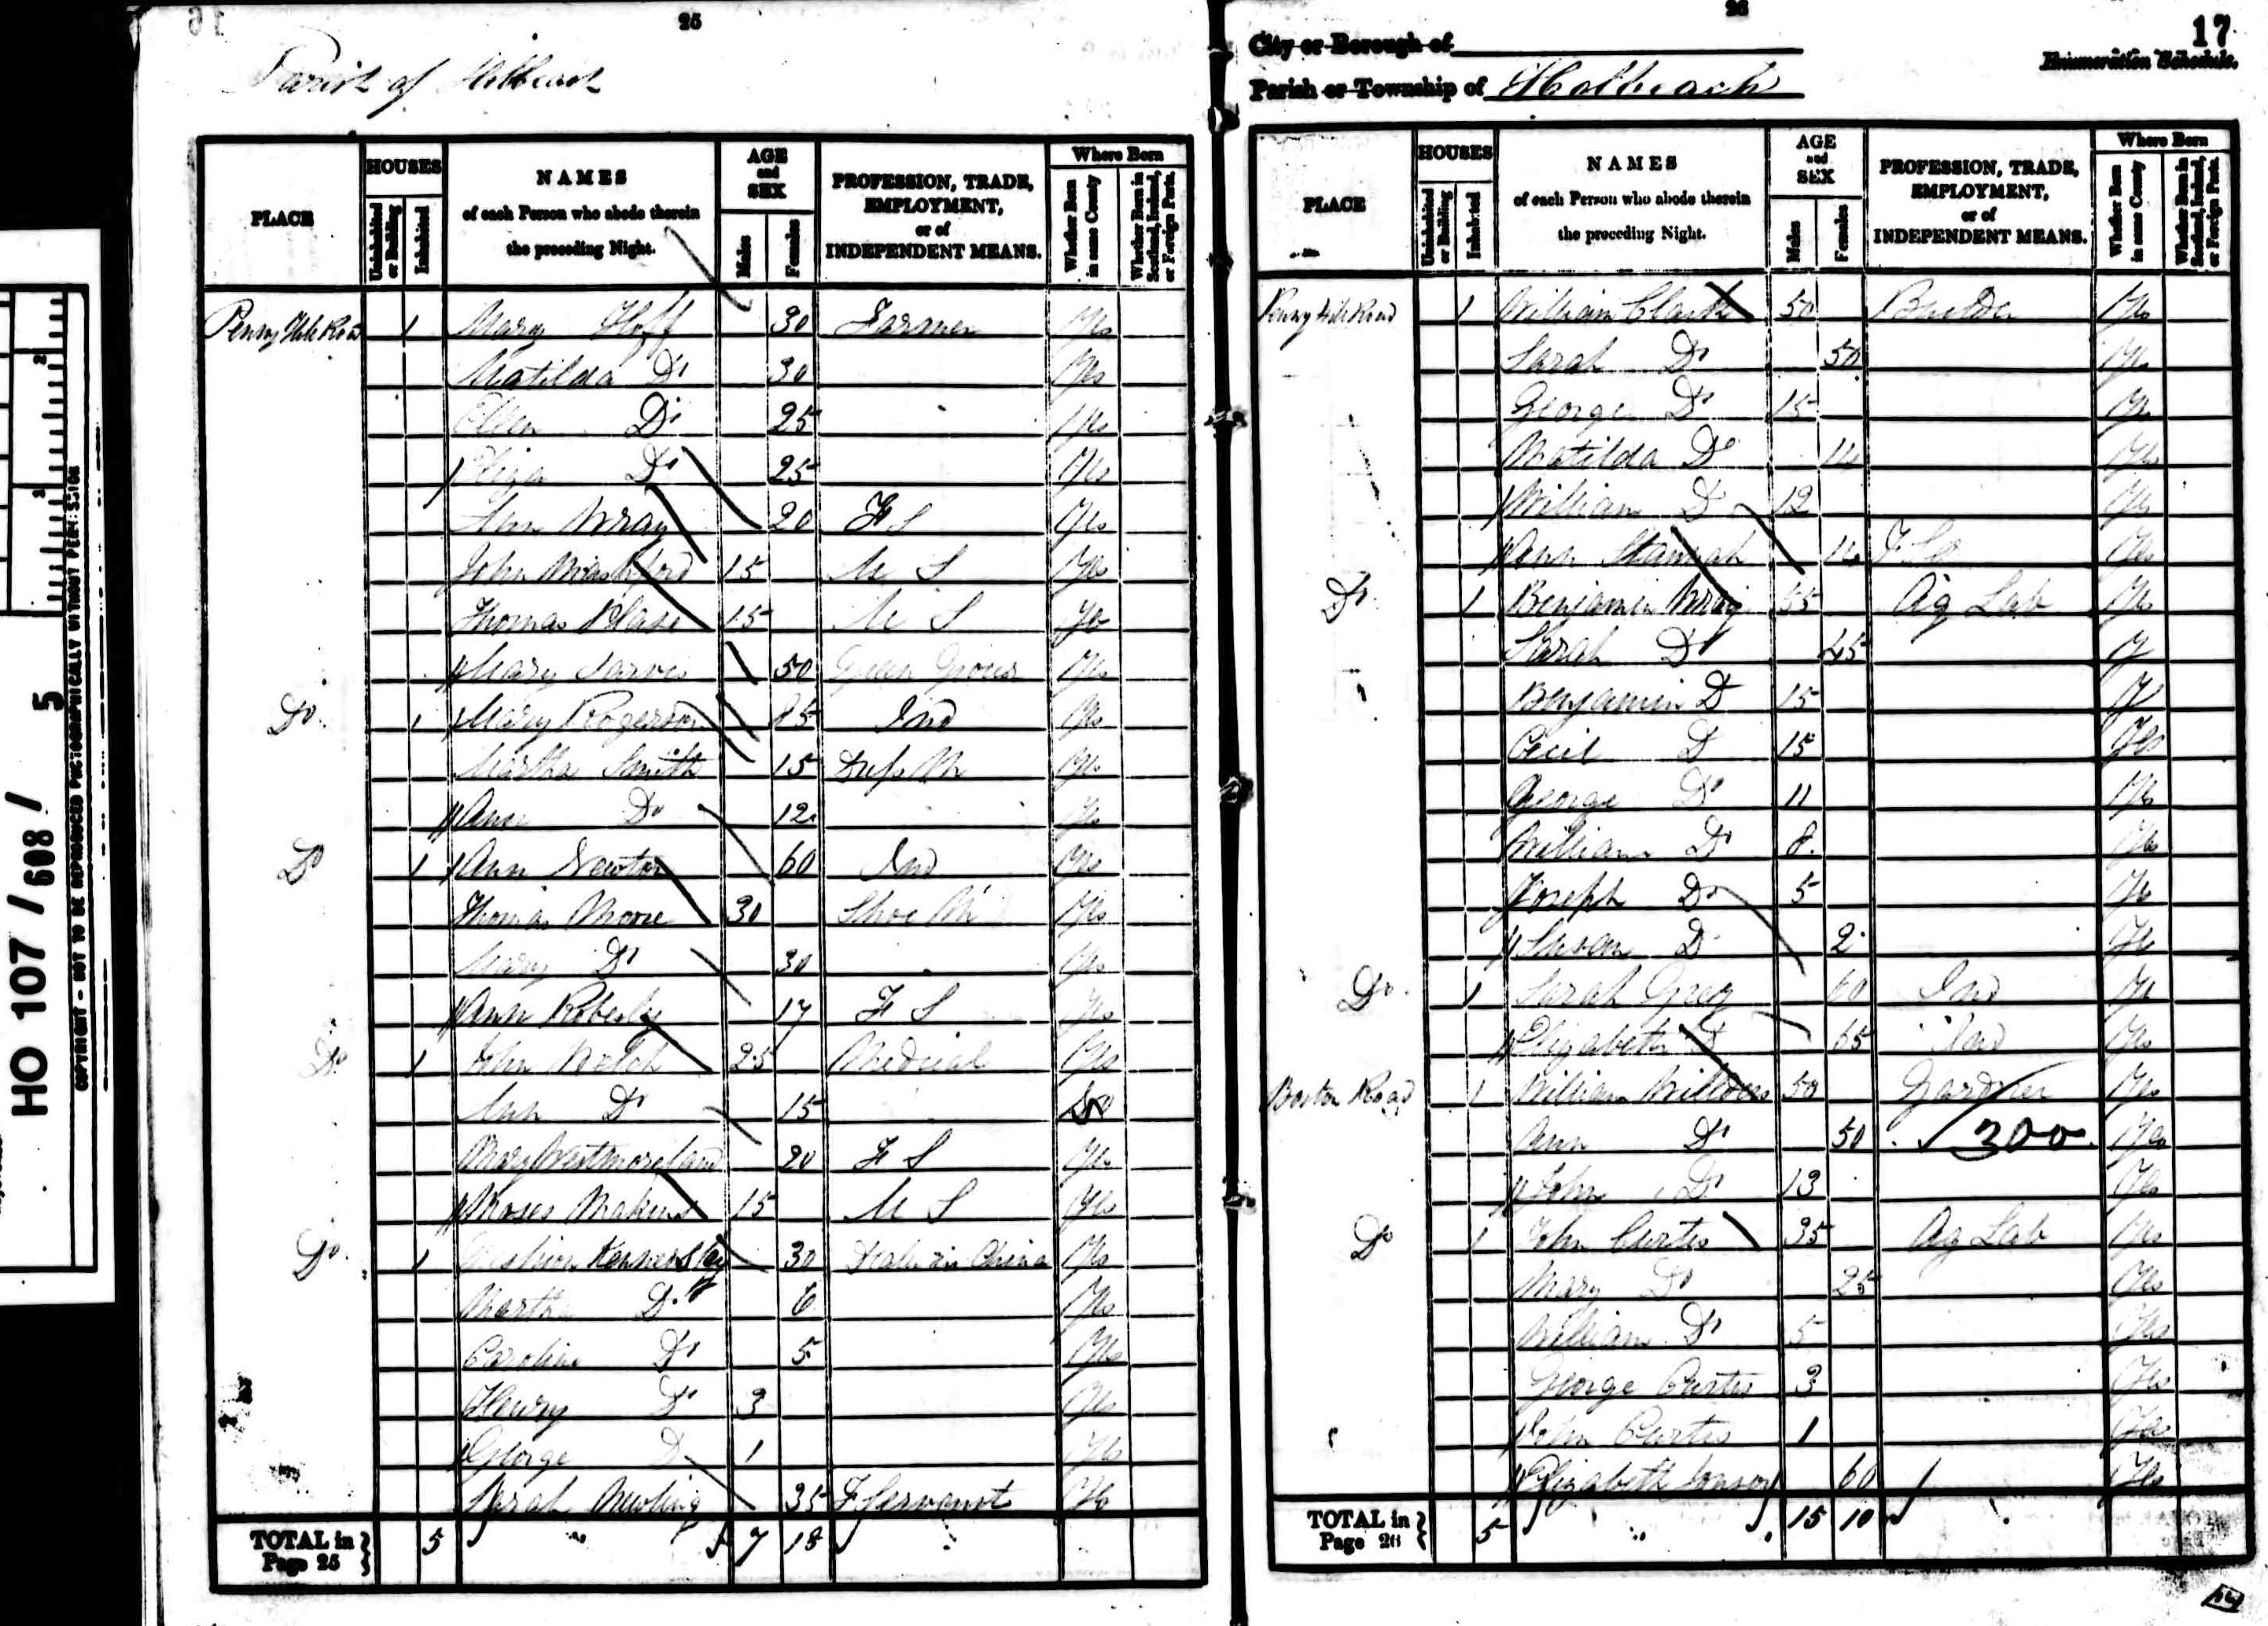 HO 107 / 608 / 5
COPYRIGHT - NOT TO BE REPRODUCED PHOTOGRAPHICALLY WITHOUT PERMISSION
25
Parish of Holbeach
PLACE
HOUSES
Uninhabited or Building
Inhabited
NAMES
of each Person who abode therein
the preceding Night.
AGE and SEX
Males
Females
PROFESSION, TRADE,
EMPLOYMENT,
or of
INDEPENDENT MEANS.
Where Born
Whether Born in same County
Whether Born in Scotland, Ireland, or Foreign Parts.
Penny Hill Road 1 Mary Hoff 30 Farmer Yes
Matilda Do 30 Yes
Ellen Do 25 Yes
Eliza Do 25 Yes
Ann Wray 20 F S Yes
John Mashford 15 M S Yes
Thomas Blase 15 M S Yes
Mary Jarvis 50 Yes
Do 1 Mary Rogerson 85 Ind Yes
Martha Smith 15 M Yes
Ann Do 12 Yes
Do 1 Ann Newton 60 Ind Yes
Thomas Moore 30 Shoe M Yes
Mary Do 30 Yes
Ann 17 F S Yes
Do 1 John Welch 25 Medical Yes
Ann Do 15
Mary Westmoreland 20 F S Yes
Moses Makins 15 M S Yes
Do 1 Kennersley 30 China Yes
Martha Do 6 Yes
Caroline Do 5 Yes
Henry Do 3 Yes
George D 1 Yes
Sarah Newling 35 F Servant Yes
TOTAL in Page 25 } 5 7 18
26
17
City or Borough of
Enumeration Schedule.
Parish or Township of Holbeach
PLACE
HOUSES
Uninhabited or Building
Inhabited
NAMES
of each Person who abode therein
the preceding Night.
AGE and SEX
Males
Females
PROFESSION, TRADE,
EMPLOYMENT,
or of
INDEPENDENT MEANS.
Where Born
Whether Born in same County
Whether Born in Scotland, Ireland, or Foreign Parts.
Penny Hill Road 1 William Clark 50 Builder Yes
Sarah Do 50 Yes
George Do 15 Yes
Matilda Do 14 Yes
William D 12 Yes
Ann Stannah 14 Yes
Do 1 Benjamin Wray 55 Ag Lab Yes
Sarah Do 45 Y
Benjamin D 15 Y
Cecil D 15 Yes
George Do 11 Yes
William Do 8 Yes
Joseph Do 5 Yes
Susan D 2 Yes
Do 1 Sarah Grey 60 Ind Yes
Elizabeth D 65 Ind Yes
Boston Road 1 William Willows 50 Gardner Yes
Ann Do 50 300 Yes
John Do 13 Yes
Do 1 John Curtis 35 Ag Lab Yes
Mary Do 25 Yes
William Do 5 Yes
George Curtis 3 Yes
John Curtis 1 Yes
Elizabeth Jonson 60 Yes
TOTAL in Page 26 } 5 15 10